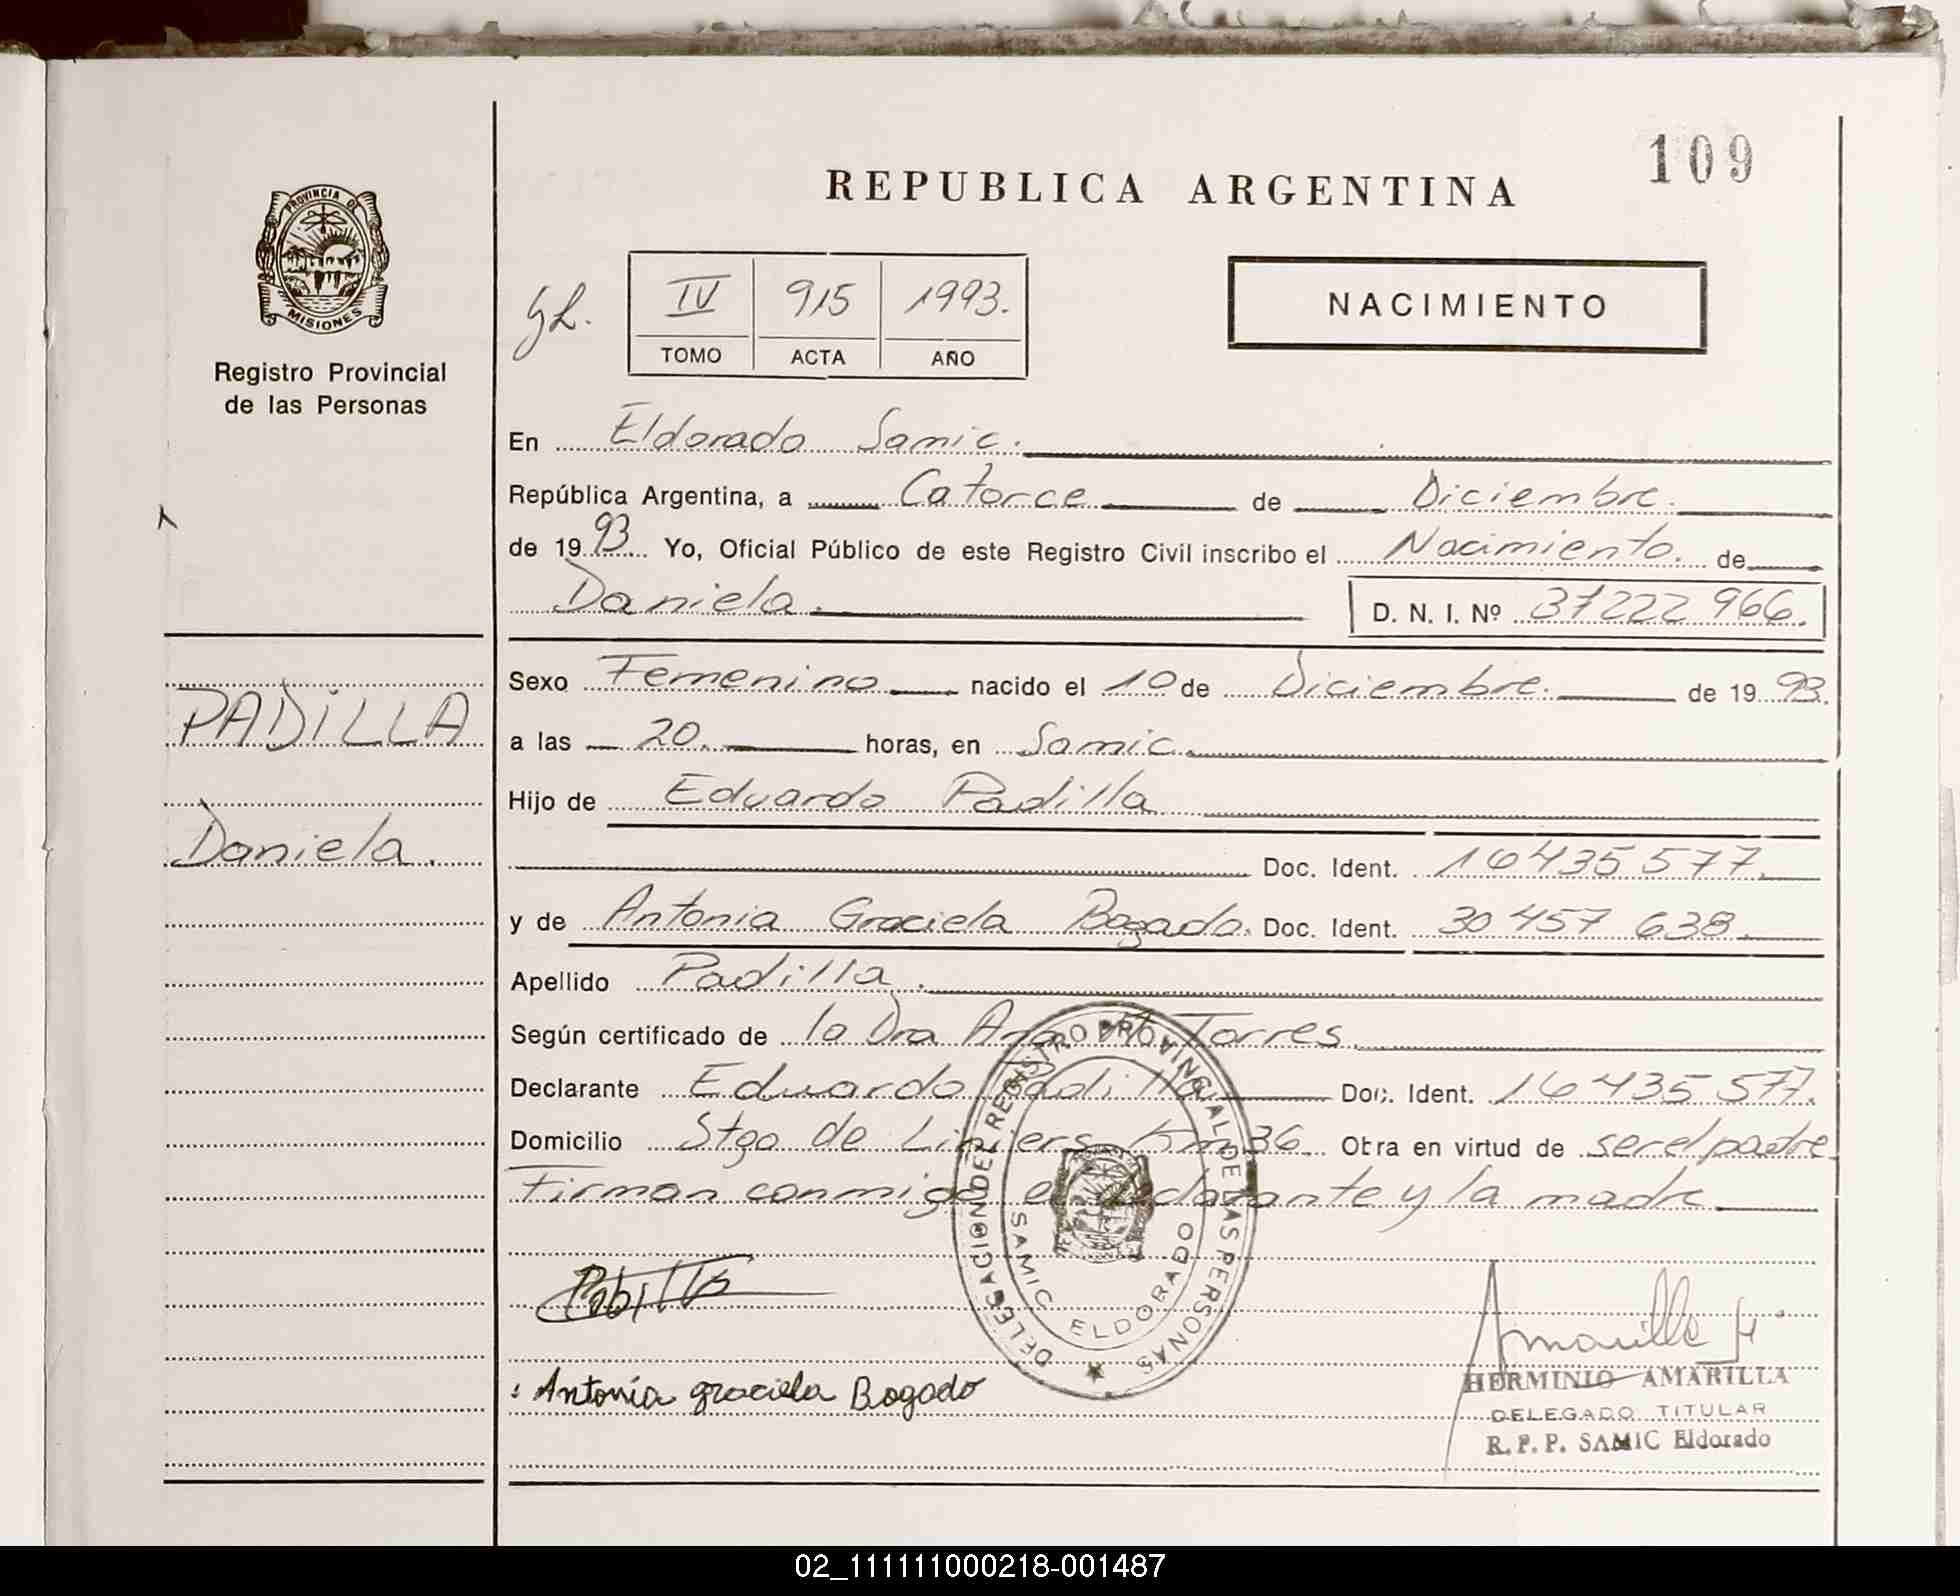 109
REPUBLICA ARGENTINA
PROVINCIA DE
MISIONES
Registro Provincial
de las Personas
IV 915 1993.
TOMO ACTA AÑO
NACIMIENTO
En Eldorado Samic.
República Argentina, a Catorce de Diciembre.
de 19 93 Yo, Oficial Público de este Registro Civil inscribo el Nacimiento. de
Daniela. D. N. I. Nº 37222 966.
Sexo Femenino nacido el 10 de Diciembre. de 19 93.
a las 20. horas, en Samic.
Hijo de Eduardo Padilla
Doc. Ident. 16435577.
y de Antonia Graciela Bogado. Doc. Ident. 30 457 638.
Apellido Padilla.
Según certificado de la Dra Ana Torres.
Declarante Eduardo Padilla Doc. Ident. 16 435 577.
Domicilio Stgo de Liniers Km 36. Otra en virtud de ser el padre
Firman conmigo el declarante y la madre
PADILLA
Daniela.
DELEGACION DEL REGISTRO PROVINCIAL DE LAS PERSONAS
SAMIC ELDORADO
Padilla
Antonia graciela Bogado
Amarilla H
HERMINIO AMARILLA
DELEGADO TITULAR
R. P. P. SAMIC Eldorado
02_111111000218-001487